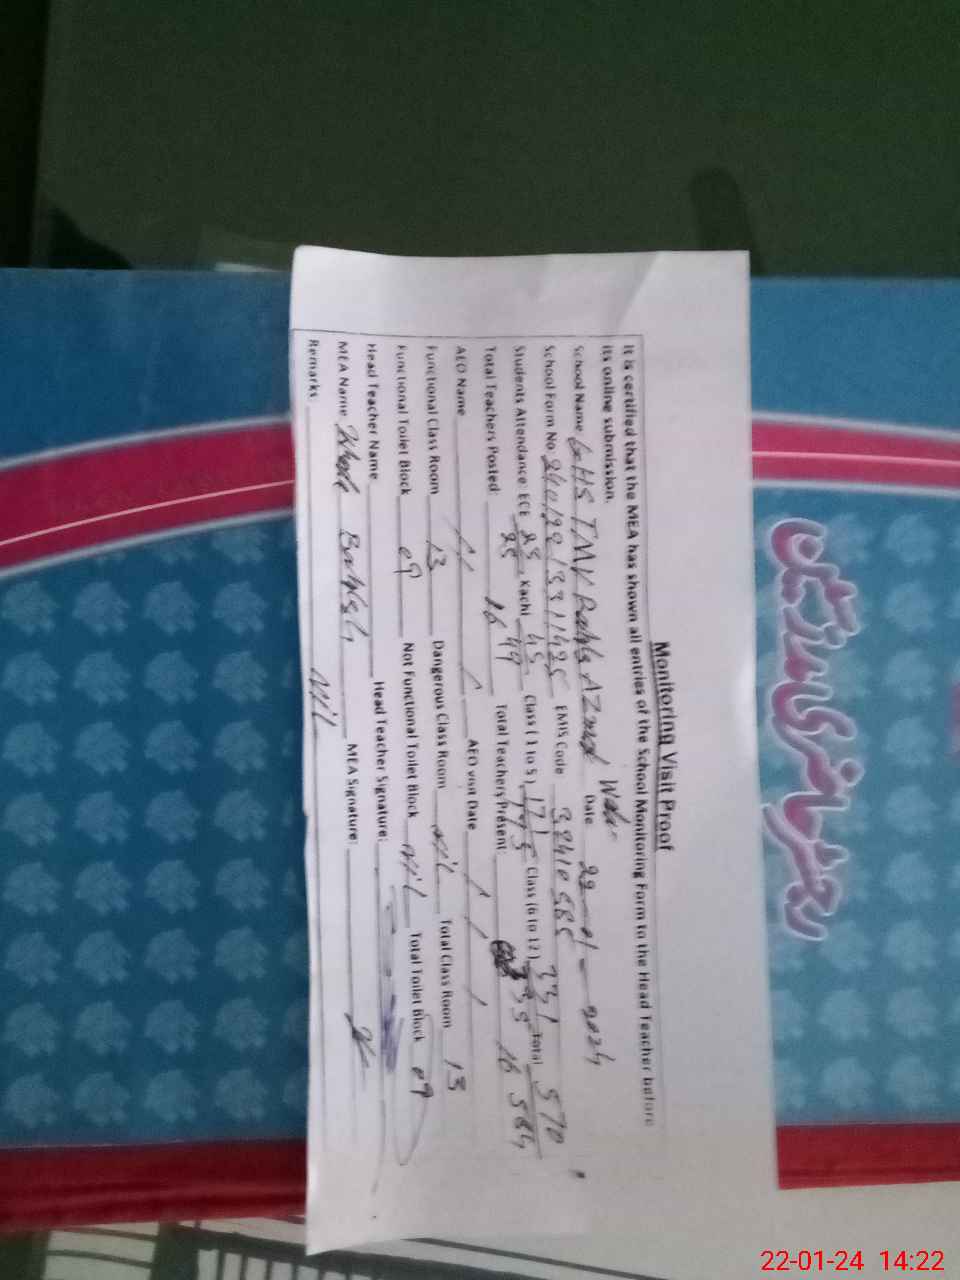 Monitoring Visit Proof
It is certified that the MEA has shown all entries of the School Monitoring Form to the Head Teacher before
its online submission.
School Name GHS TMV Date 22-01-2024
School Form No EMIS Code 32410585
Students Attendance: ECE 25/25, Kachi 45/49 Class (1 to 5) 171/175 Class (6 to 12) 331/335 Total 570/584
Total Teachers Posted: 16 Total Teachers Present: 16
AEO Name AEO visit Date
Functional Class Room 13 Dangerous Class Room Nil Total Class Room 13
Functional Toilet Block 09 Not Functional Toilet Block Nil Total Toilet Block 09
Head Teacher Name Head Teacher Signature:
MEA Name MEA Signature:
Remarks: Nil
22-01-24 14:22